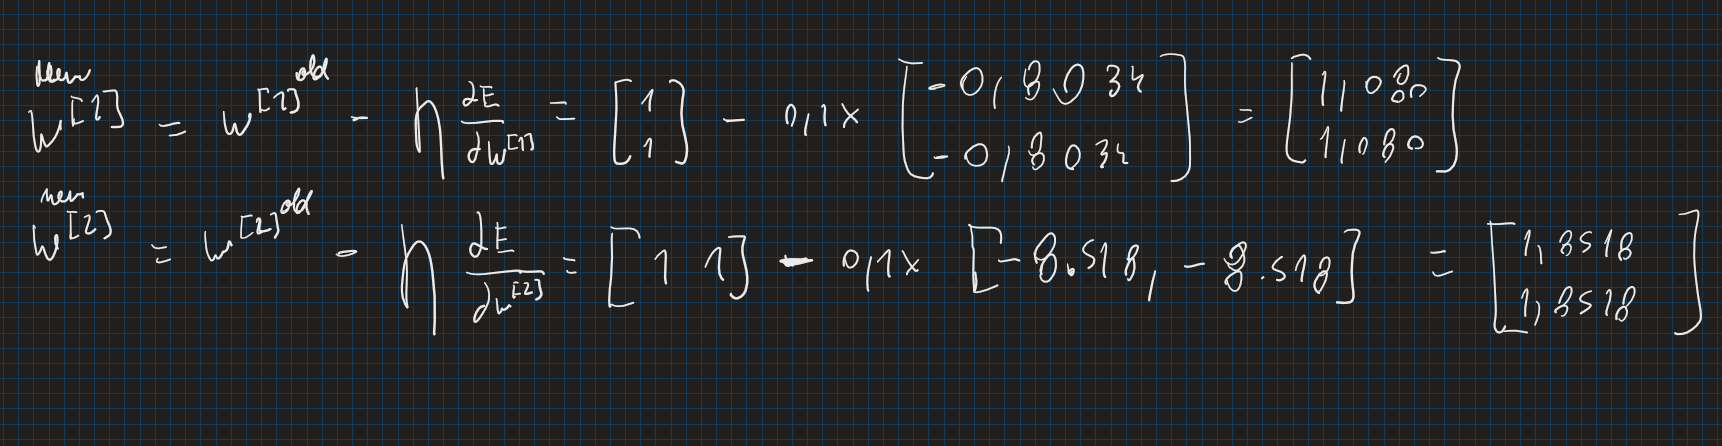 W^{[1]^{new}} = W^{[1]^{old}} - η ∂E/∂W^{[1]} = [1; 1] - 0,1 x [-0,8034; -0,8034] = [1,080; 1,080]
W^{[2]^{new}} = W^{[2]^{old}} - η ∂E/∂W^{[2]} = [1 1] - 0,1 x [-8.518, -8.518] = [1,8518; 1,8518]